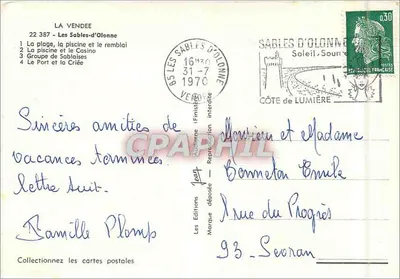 LA VENDEE
22 387 - Les Sables-d'Olonne
1 La plage, la piscine et le remblai
2 La piscine et le Casino
3 Groupe de Sablaises
4 Le Port et la Criée
85 LES SABLES D'OLONNE
16H30
31-7
1970
VENDEE
SABLES D'OLONNE
Soleil-Sourire
CÔTE de LUMIÈRE
0,30
Sincères amitiés de
vacances terminées.
lettre suit.
Famille Plomp
Collectionnez les cartes postales
Les Éditions
Marque déposée - Reproduction interdite
CPAPHIL
Monsieur et Madame
Bonneton Emile
1 rue du Progrès
93_Sevran